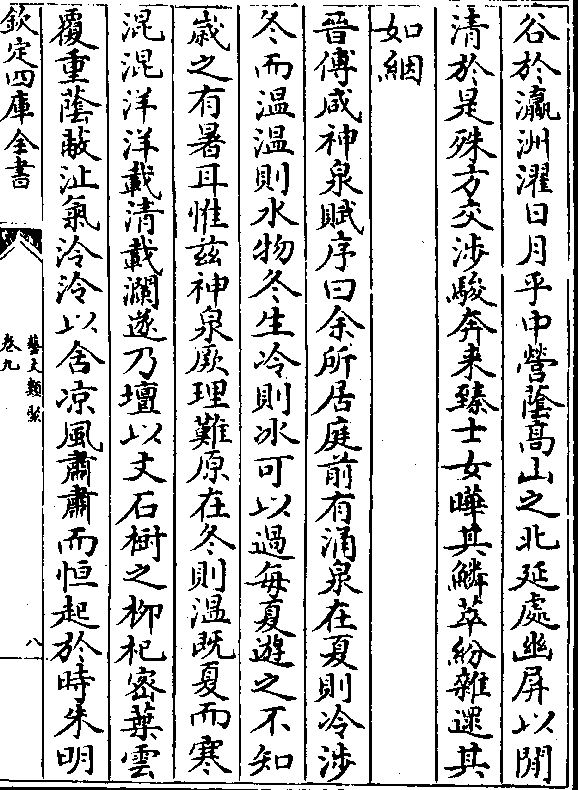 谷於瀛洲濯日月乎中營蔭高山之北延處幽屏以閒
清於是殊方交涉駿奔来臻士女曄其鱗萃紛雜遝其
如絪
晉傅咸神泉賦序曰余所居庭前有涌泉在夏則冷涉
冬而温温則水物冬生冷則冰可以過每夏遊之不知
歳之有暑耳惟兹神泉厥理難原在冬則温既夏而寒
混混洋洋載清載瀾遂乃壇以文石樹之栁杞宻葉雲
覆重蔭蔽沚氣泠泠以舍凉風肅肅而恒起於時朱明
欽定四庫全書
藝文類聚
卷九
八